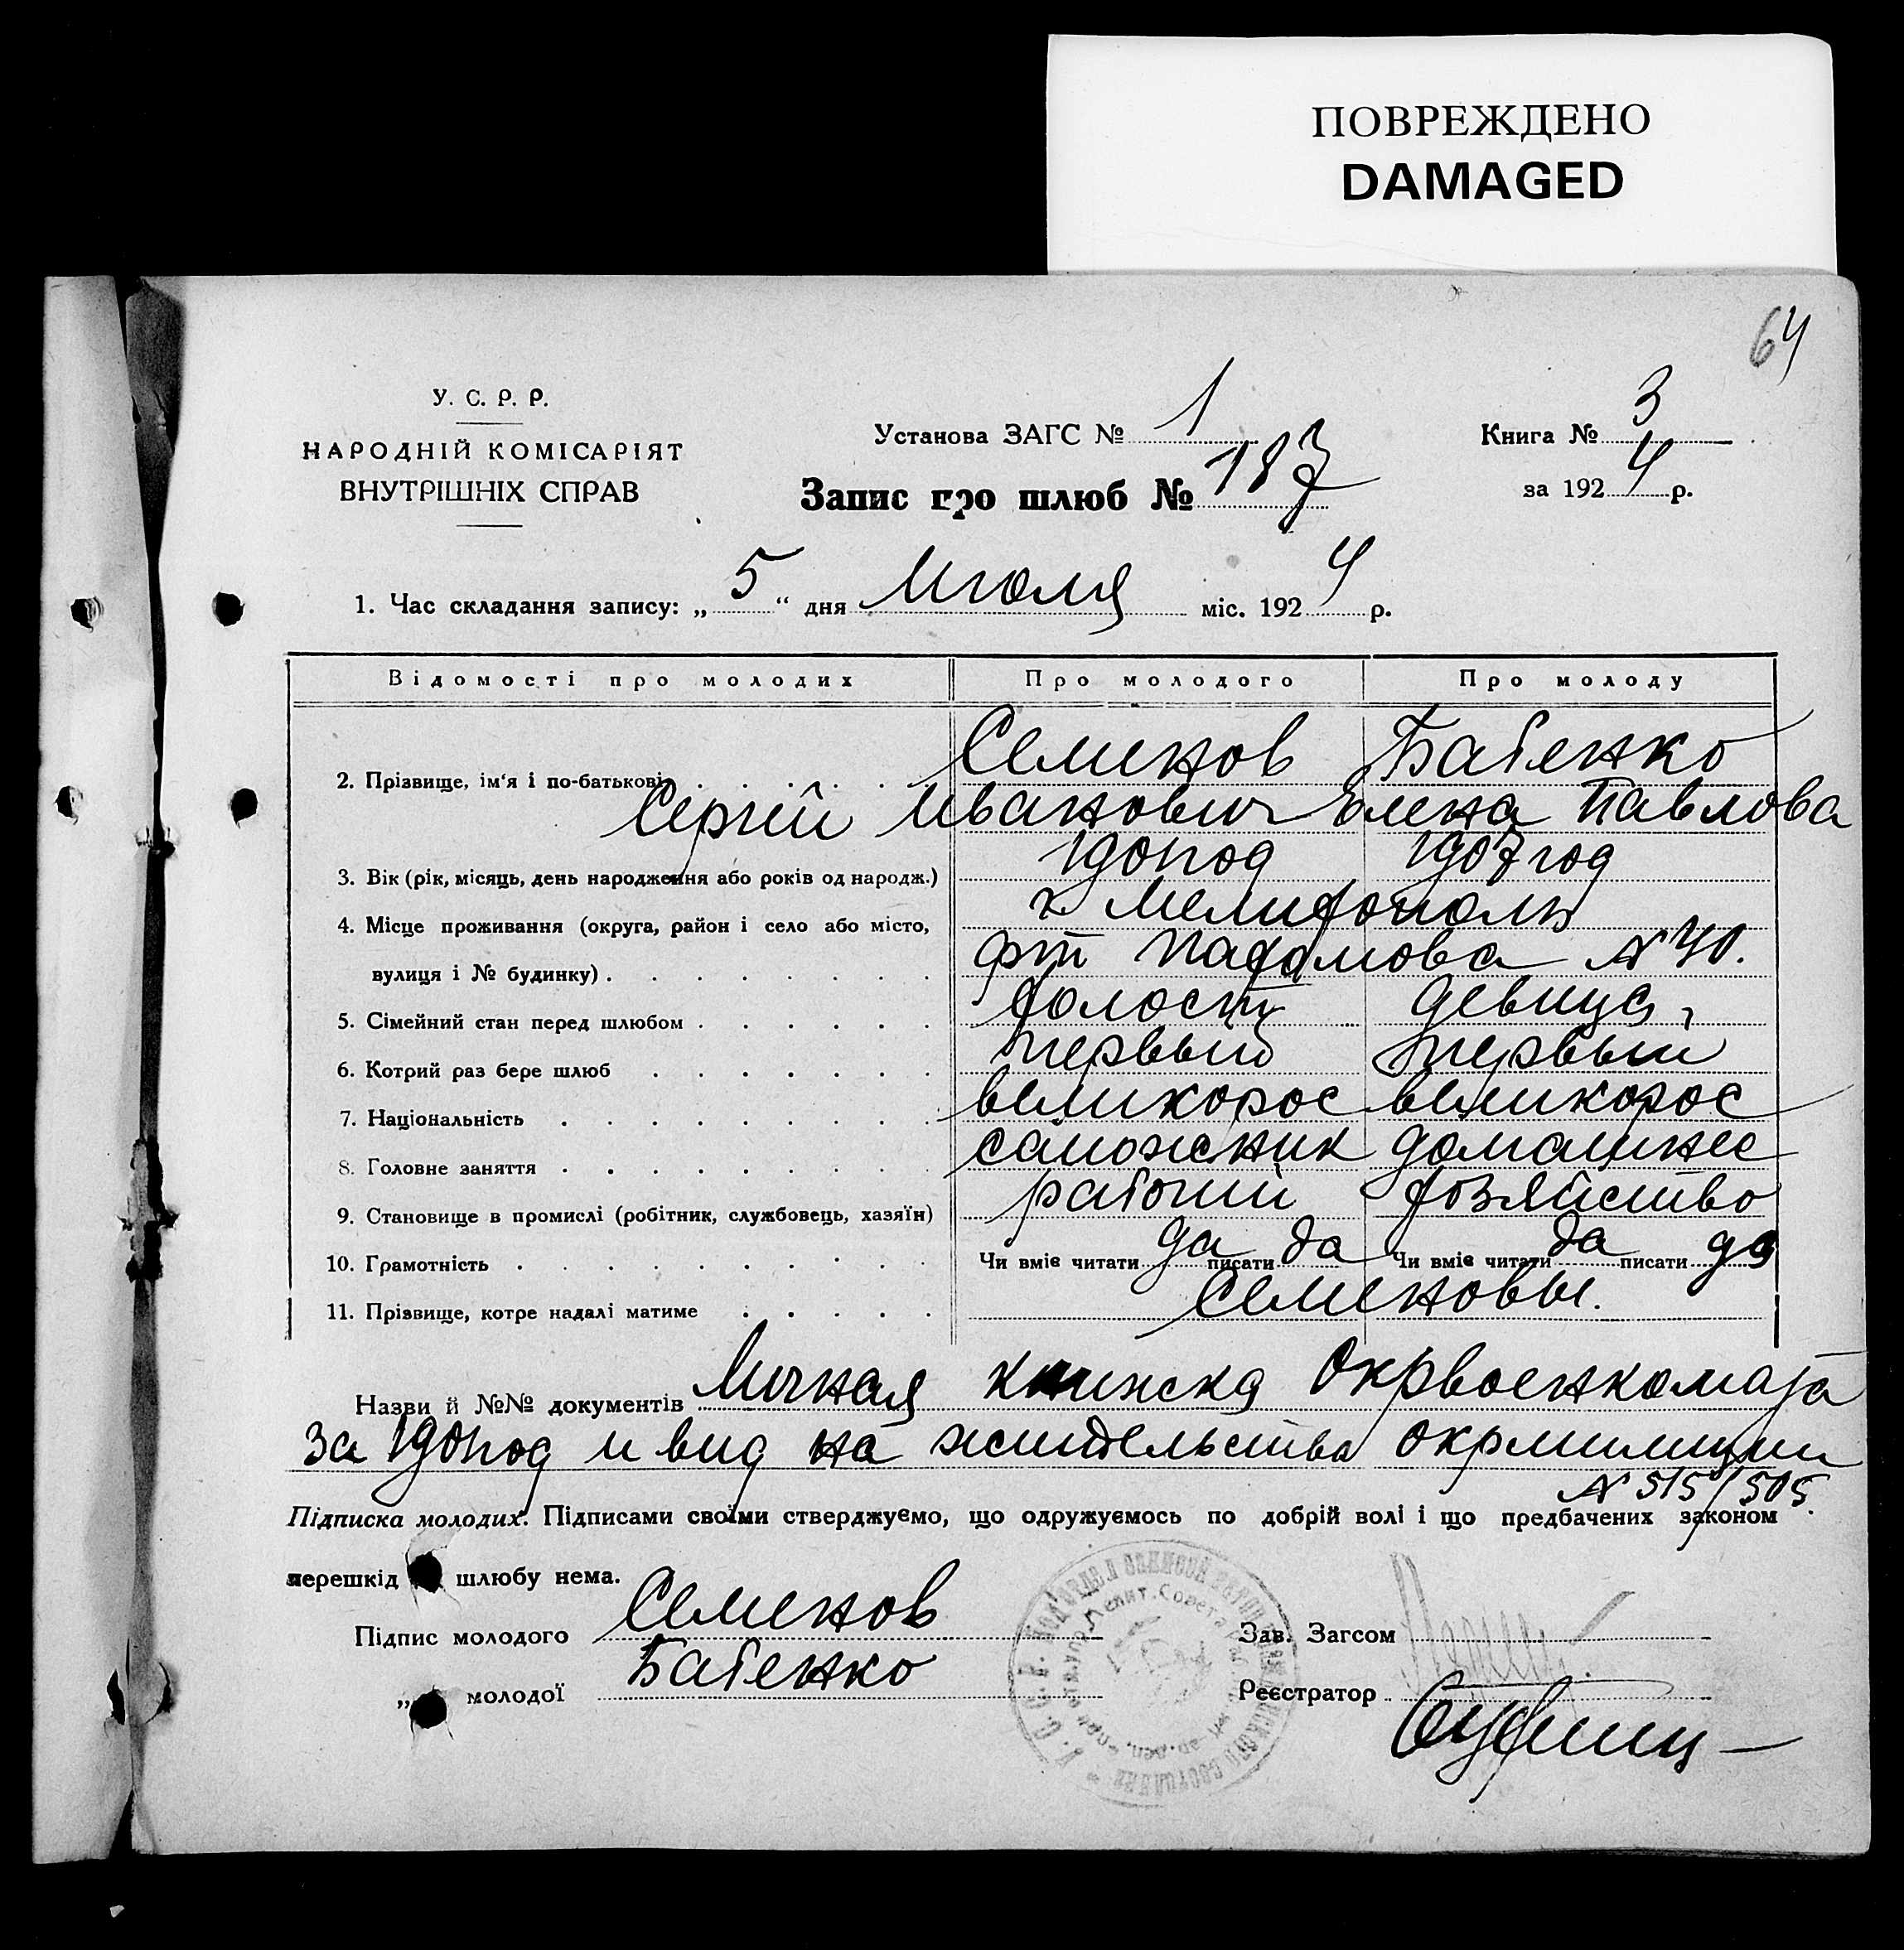 ПОВРЕЖДЕНО
DAMAGED
64
У. С. Р. Р.
НАРОДНІЙ КОМІСАРІЯТ
ВНУТРІШНІХ СПРАВ
Установа ЗАГС № 1
Книга № 3
Запис про шлюб № 187
за 1924 р.
1. Час складання запису: „ 5 “ дня Июля міс. 1924 р.
Відомості про молодих Про молодого Про молоду
Семенов Бабенко
2. Прізвище, ім'я і по-батькові
Сергей Иванович Елена Павлова
3. Вік (рік, місяць, день народження або років од народж.) 1901 год 1907 год
4. Місце проживання (округа, район і село або місто, г Мелитополь
вулиця і № будинку) № 40.
5. Сімейний стан перед шлюбом холост девица
6. Котрий раз бере шлюб первый первый
7. Національність великорос великорос
8. Головне заняття сапожник домашнее
9. Становище в промислі (робітник, службовець, хазяїн) рабочий хозяйство
10. Грамотність Чи вміє читати да писати да Чи вміє читати да писати да
11. Прізвище, котре надалі матиме Семеновы.
Назви й №№ документів Личная книжка Окрвоенкомата
за 1901 год и вид на жительства окрмилиции
№ 515/505.
Підписка молодих. Підписами своїми стверджуємо, що одружуємось по добрій волі і що предбачених законом
перешкід шлюбу нема.
Підпис молодого Семенов
Зав. Загсом
„ молодої Бабенко
Реєстратор